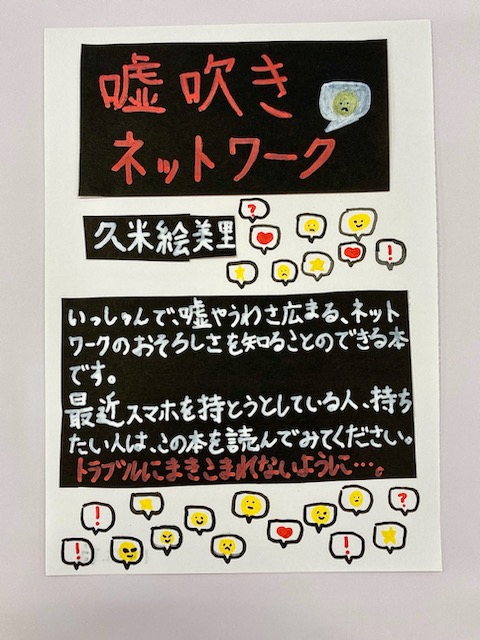 嘘吹き
ネットワーク
?
久米絵美里
!
いっしゅんで、嘘やうわさ広まる、ネット
ワークのおそろしさを知ることのできる本
です。
最近スマホを持とうとしている人、持ち
たい人は、この本を読んでみてください。
トラブルにまきこまれないように…。
! ?
! !